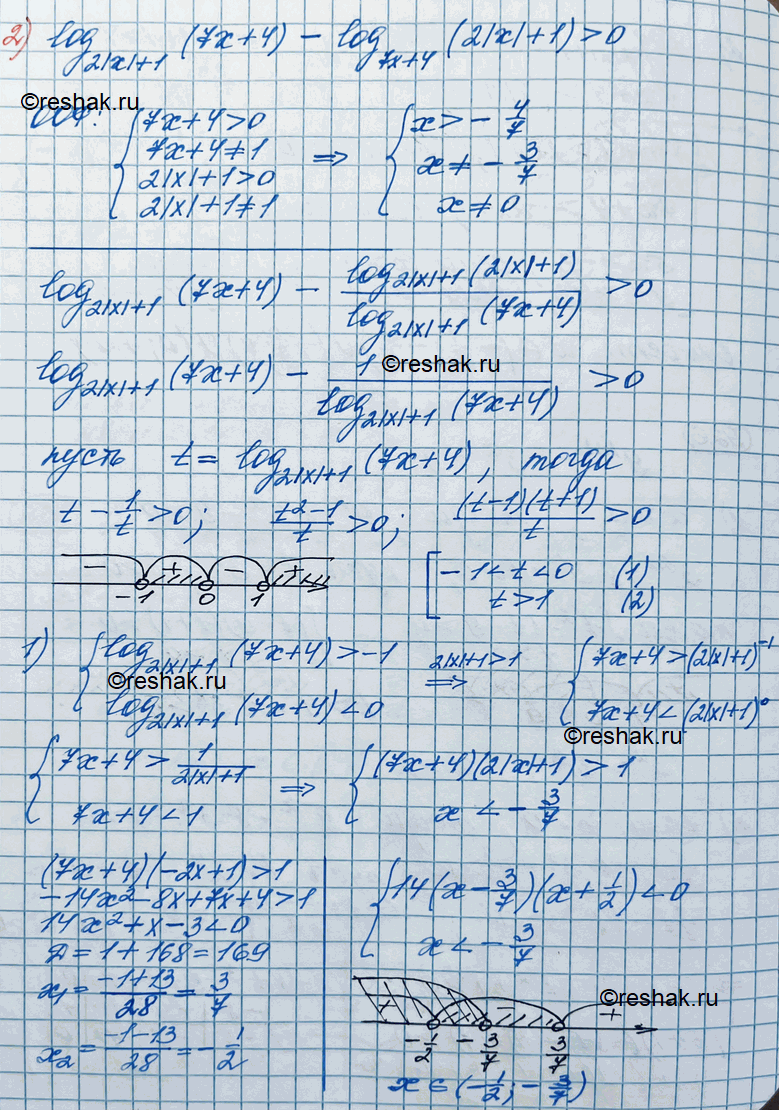 2) log_{2|x|+1} (7x+4) − log_{7x+4} (2|x|+1) > 0
©reshak.ru
ООУ: { 7x+4>0 ; 7x+4≠1 ; 2|x|+1>0 ; 2|x|+1≠1 ⇒ { x>−4/7 ; x≠−3/7 ; x≠0
log_{2|x|+1} (7x+4) − log_{2|x|+1} (2|x|+1) / log_{2|x|+1} (7x+4) > 0
©reshak.ru
log_{2|x|+1} (7x+4) − 1 / log_{2|x|+1} (7x+4) > 0
пусть t = log_{2|x|+1} (7x+4), тогда
t − 1/t > 0; (t²−1)/t > 0; (t−1)(t+1)/t > 0
− + − +
−1 0 1
[ −1<t<0 (1)
t>1 (2)
1) { log_{2|x|+1} (7x+4) > −1 ; log_{2|x|+1} (7x+4) < 0 2|x|+1>1 ⇒ { 7x+4 > (2|x|+1)⁻¹ ; 7x+4 < (2|x|+1)⁰
©reshak.ru
©reshak.ru
{ 7x+4 > 1/(2|x|+1) ; 7x+4<1 ⇒ { (7x+4)(2|x|+1) > 1 ; x < −3/7
(7x+4)(−2x+1)>1
−14x²−8x+7x+4>1
14x²+x−3<0
D=1+168=169
x₁=(−1+13)/28=3/7
x₂=(−1−13)/28=−1/2
{ 14(x−3/7)(x+1/2)<0 ; x<−3/7
©reshak.ru
+ − +
−1/2 −3/7 3/7
x∈(−1/2;−3/7)